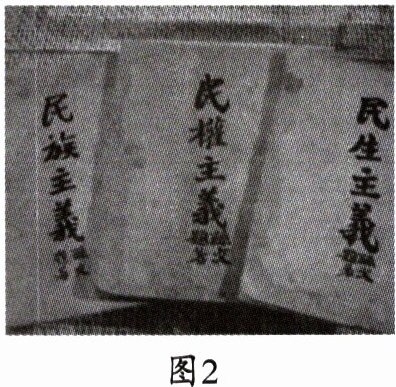 民族主義
民權主義
民生主義
孫文
孫文
孫文
图2